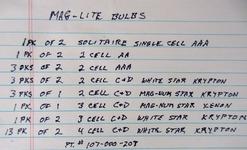 MAG-LITE BULBS
1 PK OF 2 SOLITAIRE SINGLE CELL AAA
1 PK OF 2 2 CELL AA
3 PKS OF 2 2 CELL AAA
3 PKS OF 2 2 CELL C+D WHITE STAR KRYPTON
3 PKS OF 1 2 CELL C+D MAG-NUM STAR KRYPTON
1 PK OF 1 3 CELL C+D MAG-NUM STAR XENON
1 PK OF 2 3 CELL C+D WHITE STAR KRYPTON
13 PK OF 2 4 CELL C+D WHITE STAR KRYPTON
PT. # 107-000-208